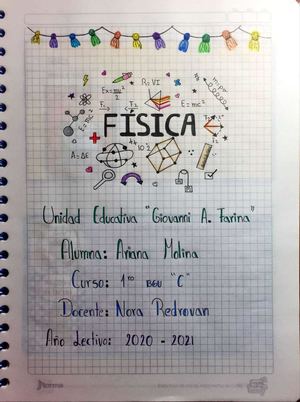 R=VI
Ex=mv²/2
F₂
F₃
E=mc²
E=mc²
FÍSICA
A=ΔE
Unidad Educativa "Giovanni A. Farina"
Alumna: Ariana Molina
Curso: 1ro BGU "C"
Docente: Nora Redrovan
Año Lectivo: 2020 - 2021
Norma